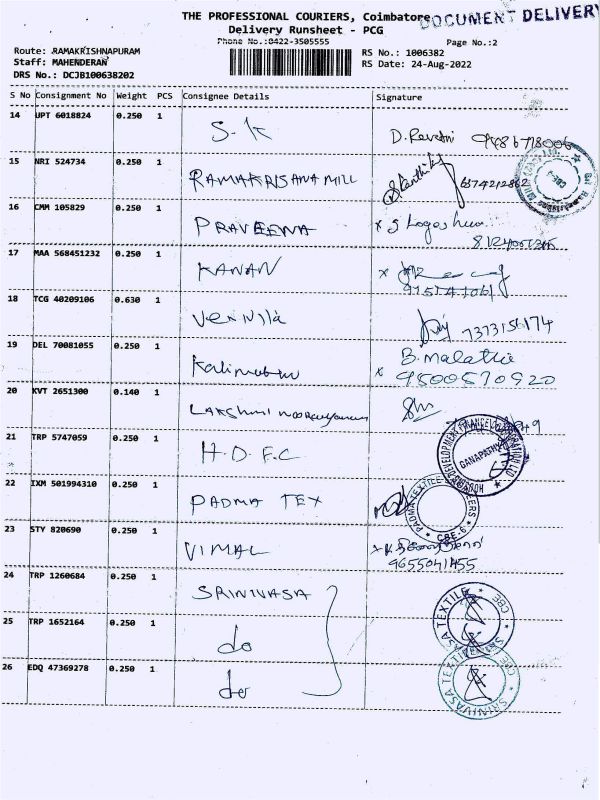 THE PROFESSIONAL COURIERS, Coimbatore
DOCUMENT DELIVERY
Delivery Runsheet - PCG
Phone No.:0422-3505555
Page No.:2
Route: RAMAKRISHNAPURAM
RS No.: 1006382
Staff: MAHENDERAN
RS Date: 24-Aug-2022
DRS No.: DCJB100638202
S No Consignment No Weight PCS Consignee Details Signature
14 UPT 6018824 0.250 1 S-K D. Revathi
15 NRI 524734 0.250 1 RAMAKRISHNA MILL
16 CMM 105829 0.250 1 PRAVEENA
17 MAA 568451232 0.250 1 KANAN
18 TCG 40209106 0.630 1 7373156174
19 DEL 70081055 0.250 1 B. Malathi
x 9500570920
20 KVT 2651300 0.140 1 LAKSHMI
21 TRP 5747059 0.250 1 H.D.F.C
HOUSING DEVELOPMENT FINANCE CORPORATION LTD
GANAPATHY
22 IXM 501994310 0.250 1 PADMA TEX
PADMA TEXTILE
CBE-6
23 STY 820690 0.250 1 VIMAL
9655041455
24 TRP 1260684 0.250 1 SRINIVASA
25 TRP 1652164 0.250 1 do
26 EDQ 47369278 0.250 1 do
SRINIVASA TEXTILE
CBE